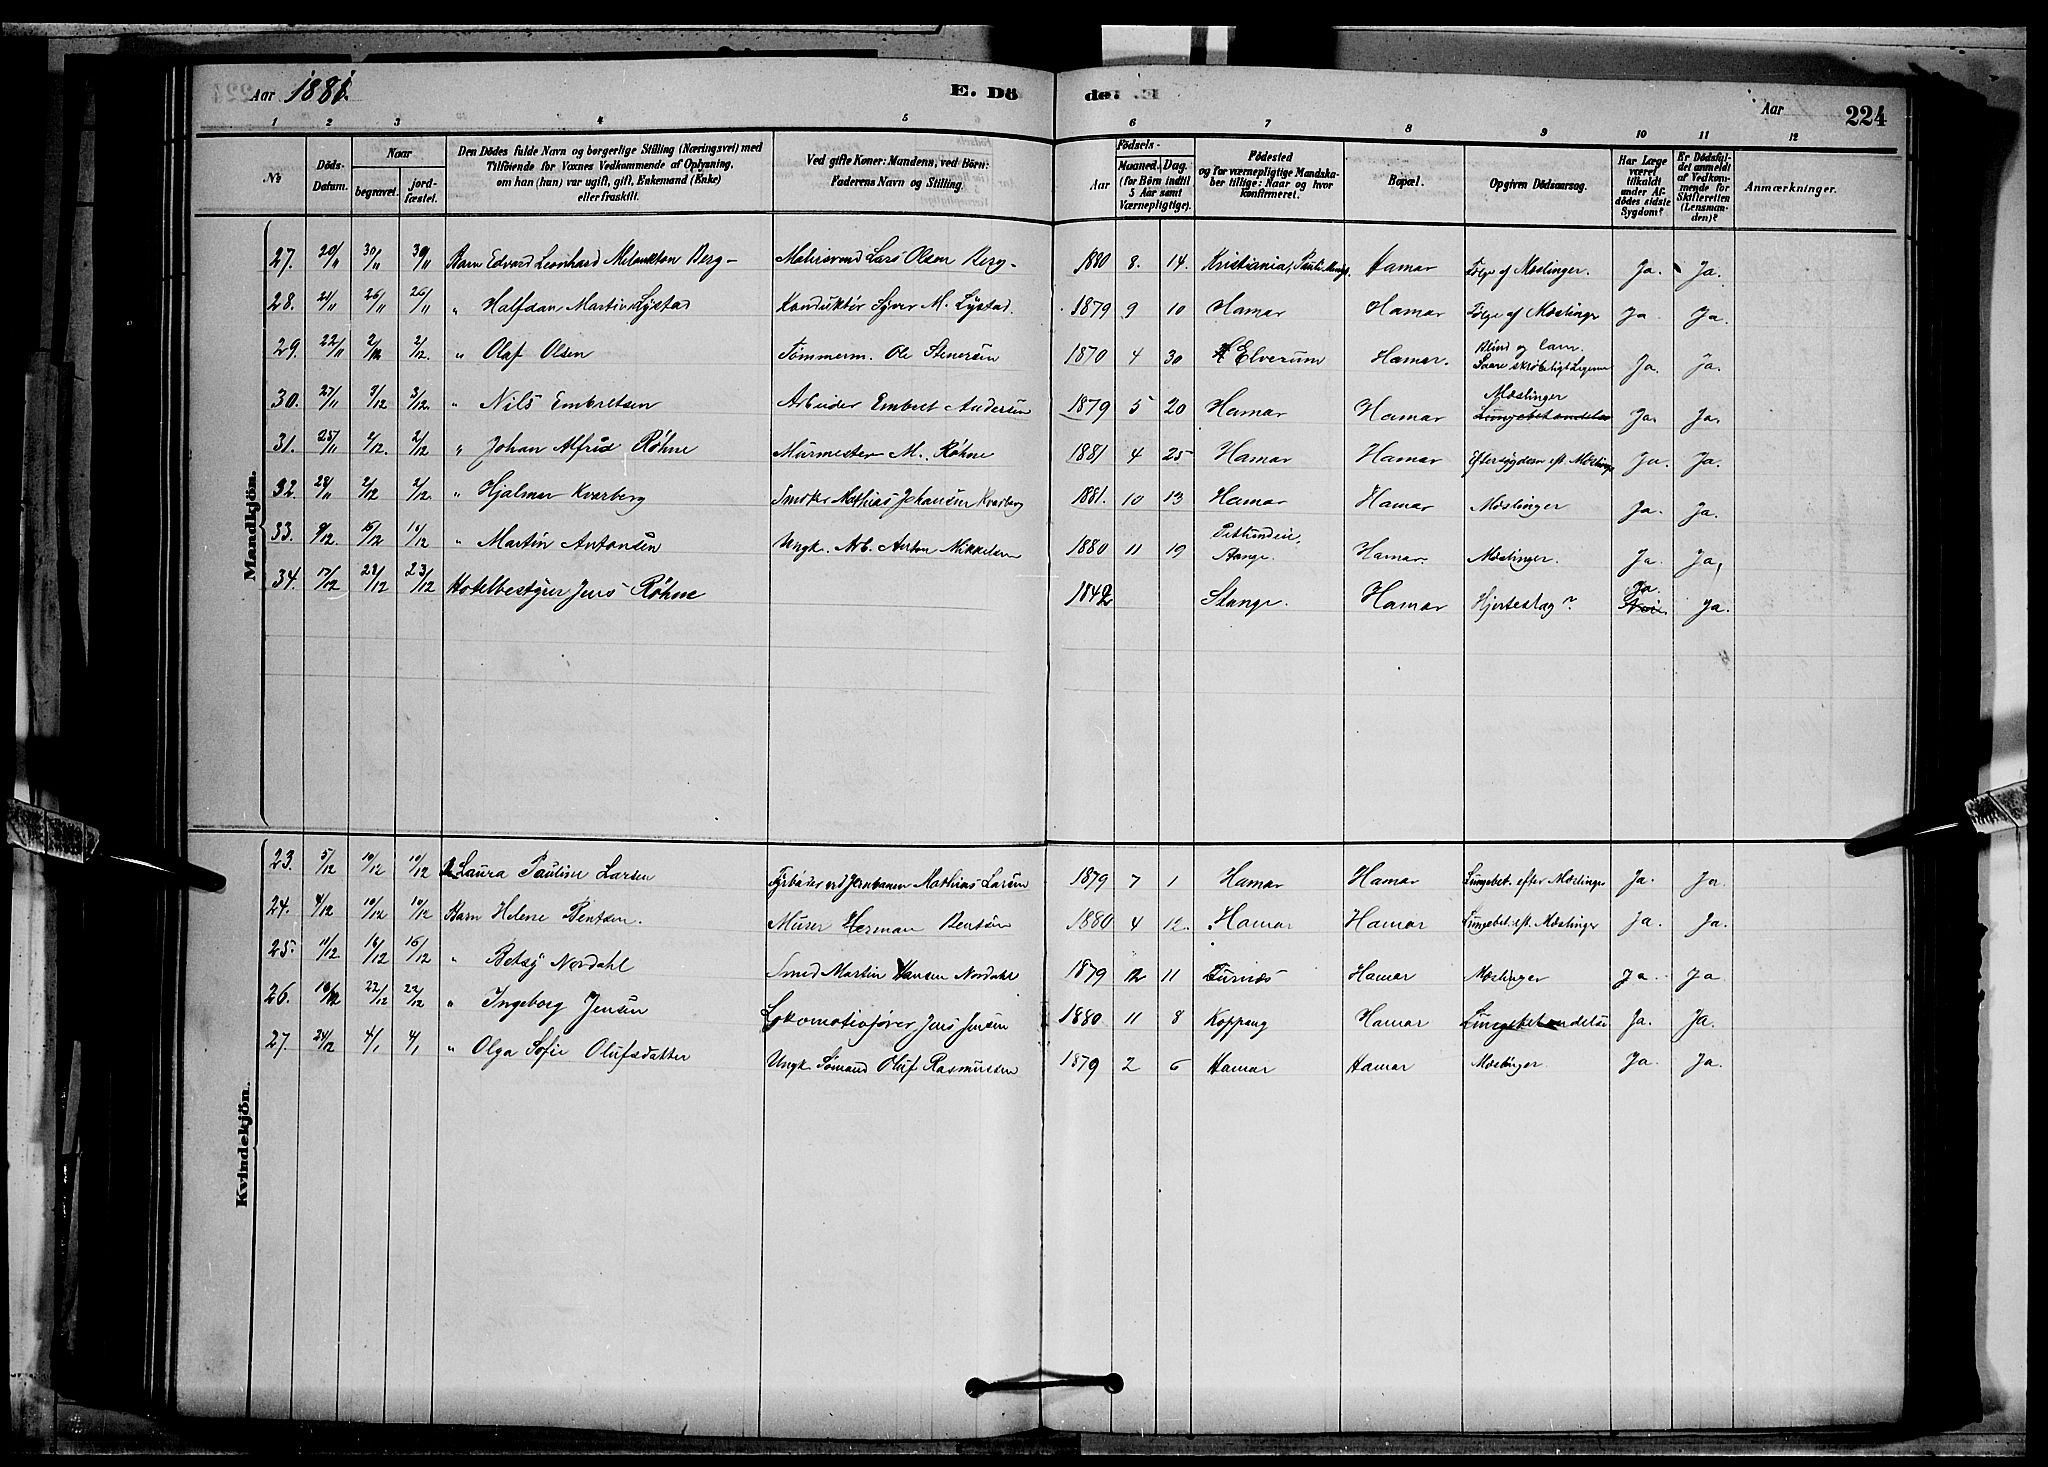 Aar 1881. E. Dö de: Aar 224
1 2 3 4 5 6 7 8 9 10 11 12
№ Döds-Datum. Naar begravet. jord-fæstet. Den Dödes fulde Navn og borgerlige Stilling (Næringsvei) med Tilföiende for Voxnes Vedkommende af Oplysning, om han (hun) var ugift, gift, Enkemand (Enke) eller fraskilt. Ved gifte Koner: Mandens, ved Börn: Faderens Navn og Stilling. Födsels- Aar Maaned. Dag. (for Börn indtil 5 Aar samt Værnepligtige). Födested og for værnepligtige Mandskaber tillige: Naar og hvor konfirmeret. Bopæl. Opgiven Dödsaarsag. Har Læge været tilkaldt under Afdödes sidste Sygdom? Er Dödsfaldet anmeldt af Vedkommende for Skifteretten (Lensmanden)? Anmærkninger.
Mandkjön.
27. 20/11 30/11 30/11 Barn Edvard Leonhard Melankton Berg - Lars Olsen Berg - 1880 8. 14. Kristiania, Hamar Følge af Mæslinger. Ja. Ja.
28. 21/11 26/11 26/11 " Halfdan Martin Lystad Konduktør Syver M. Lystad. 1879 9 10 Hamar Hamar Følge af Mæslinger Ja. Ja.
29. 22/11 2/12 2/12. " Olaf Olsen Tømmerm. Ole Stenersen 1870 4 30 Elverum Hamar. Blind og lam. Ja. Ja.
30. 27/11 3/12 3/12. " Nils Embretsen Arbeider Embret Andersen 1879 5 20 Hamar Hamar Mæslinger Lungebetændelse Ja. Ja.
31. 25/11 2/12. 2/12 " Johan Alfred Røhne Murmester M. Røhne 1881 4 25 Hamar Hamar Eftersygdom eft. Mæslinger Ja. Ja.
32. 28/11 2/12 2/12. " Hjalmar Kvarberg Mathias Johansen Kvarberg 1881. 10 13 Hamar Hamar Mæslinger Ja. Ja.
33. 9/12. 10/12 " Martin Antonsen Ungk. Arb. Anton Mikkelsen 1880 11 19 Stange. Hamar. Mæslinger. Ja. Ja.
34. 17/12 23/12 23/12 Hotelbestyrer Jens Røhne 1842 Stange. Hamar Hjerteslag? Ja Nei Ja.
Kvindekjön.
23. 5/12 10/12 10/12 Laura Pauline Larsen Fyrbøder ved Jernbanen Mathias Larsen 1879 7 1 Hamar Hamar Lungebet. efter Mæslinger Ja. Ja.
24. 4/12 10/12 10/12 Barn Helene Bentsen. Murer Herman Bentsen 1880 4 12. Hamar Hamar Lungebet. eft. Mæslinger Ja. Ja.
25. 11/12 16/12 16/12 " Betsy Nordahl Smed Martin Hansen Nordahl 1879 12 11 Furnæs Hamar Mæslinger Ja. Ja
26. 22/12 22/12 " Ingeborg Jensen Lokomotivfører Jens Jensen 1880 11 8 Koppang Hamar Lungebetændelse Ja. Ja.
27. 24/12 4/1 4/1 " Olga Sofie Olufsdatter Ungk. Sømand Oluf Rasmussen 1879 2 6 Hamar Hamar Mæslinger. Ja. Ja.